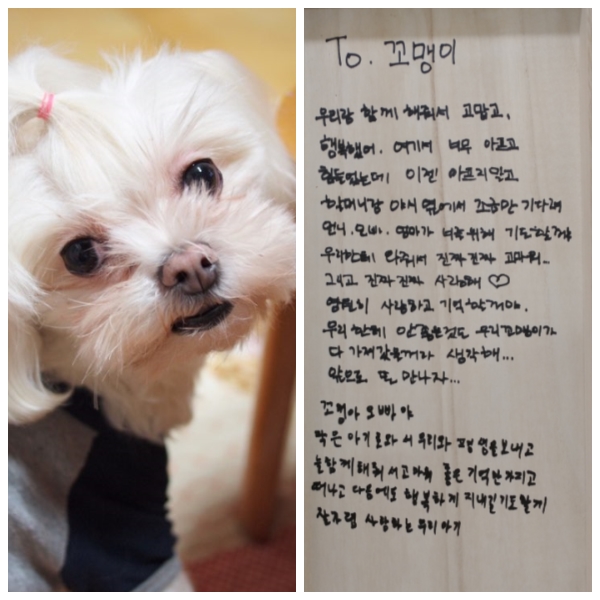 To. 꼬맹이
우리랑 함께 해줘서 고맙고,
행복했어. 여기서 너무 아프고
힘들었는데 이젠 아프지말고
할머니랑 아저씨 옆에서 조금만 기다려
언니, 오빠, 엄마가 너를 위해 기도할게
우리한테 와줘서 진짜 진짜 고마워...
그리고 진짜 진짜 사랑해 ♡
영원히 사랑하고 기억할거야.
우리 한테 안좋은것도 우리꼬맹이가
다 가져갔을꺼라 생각해...
앞으로 또 만나자...
꼬맹아 오빠야
작은 아기로와서 우리와 평생을보내고
늘함께해줘서고마워 좋은 기억만가지고
떠나고 다음에도 행복하게 지내길기도할게
잘자렴 사랑하는우리아기